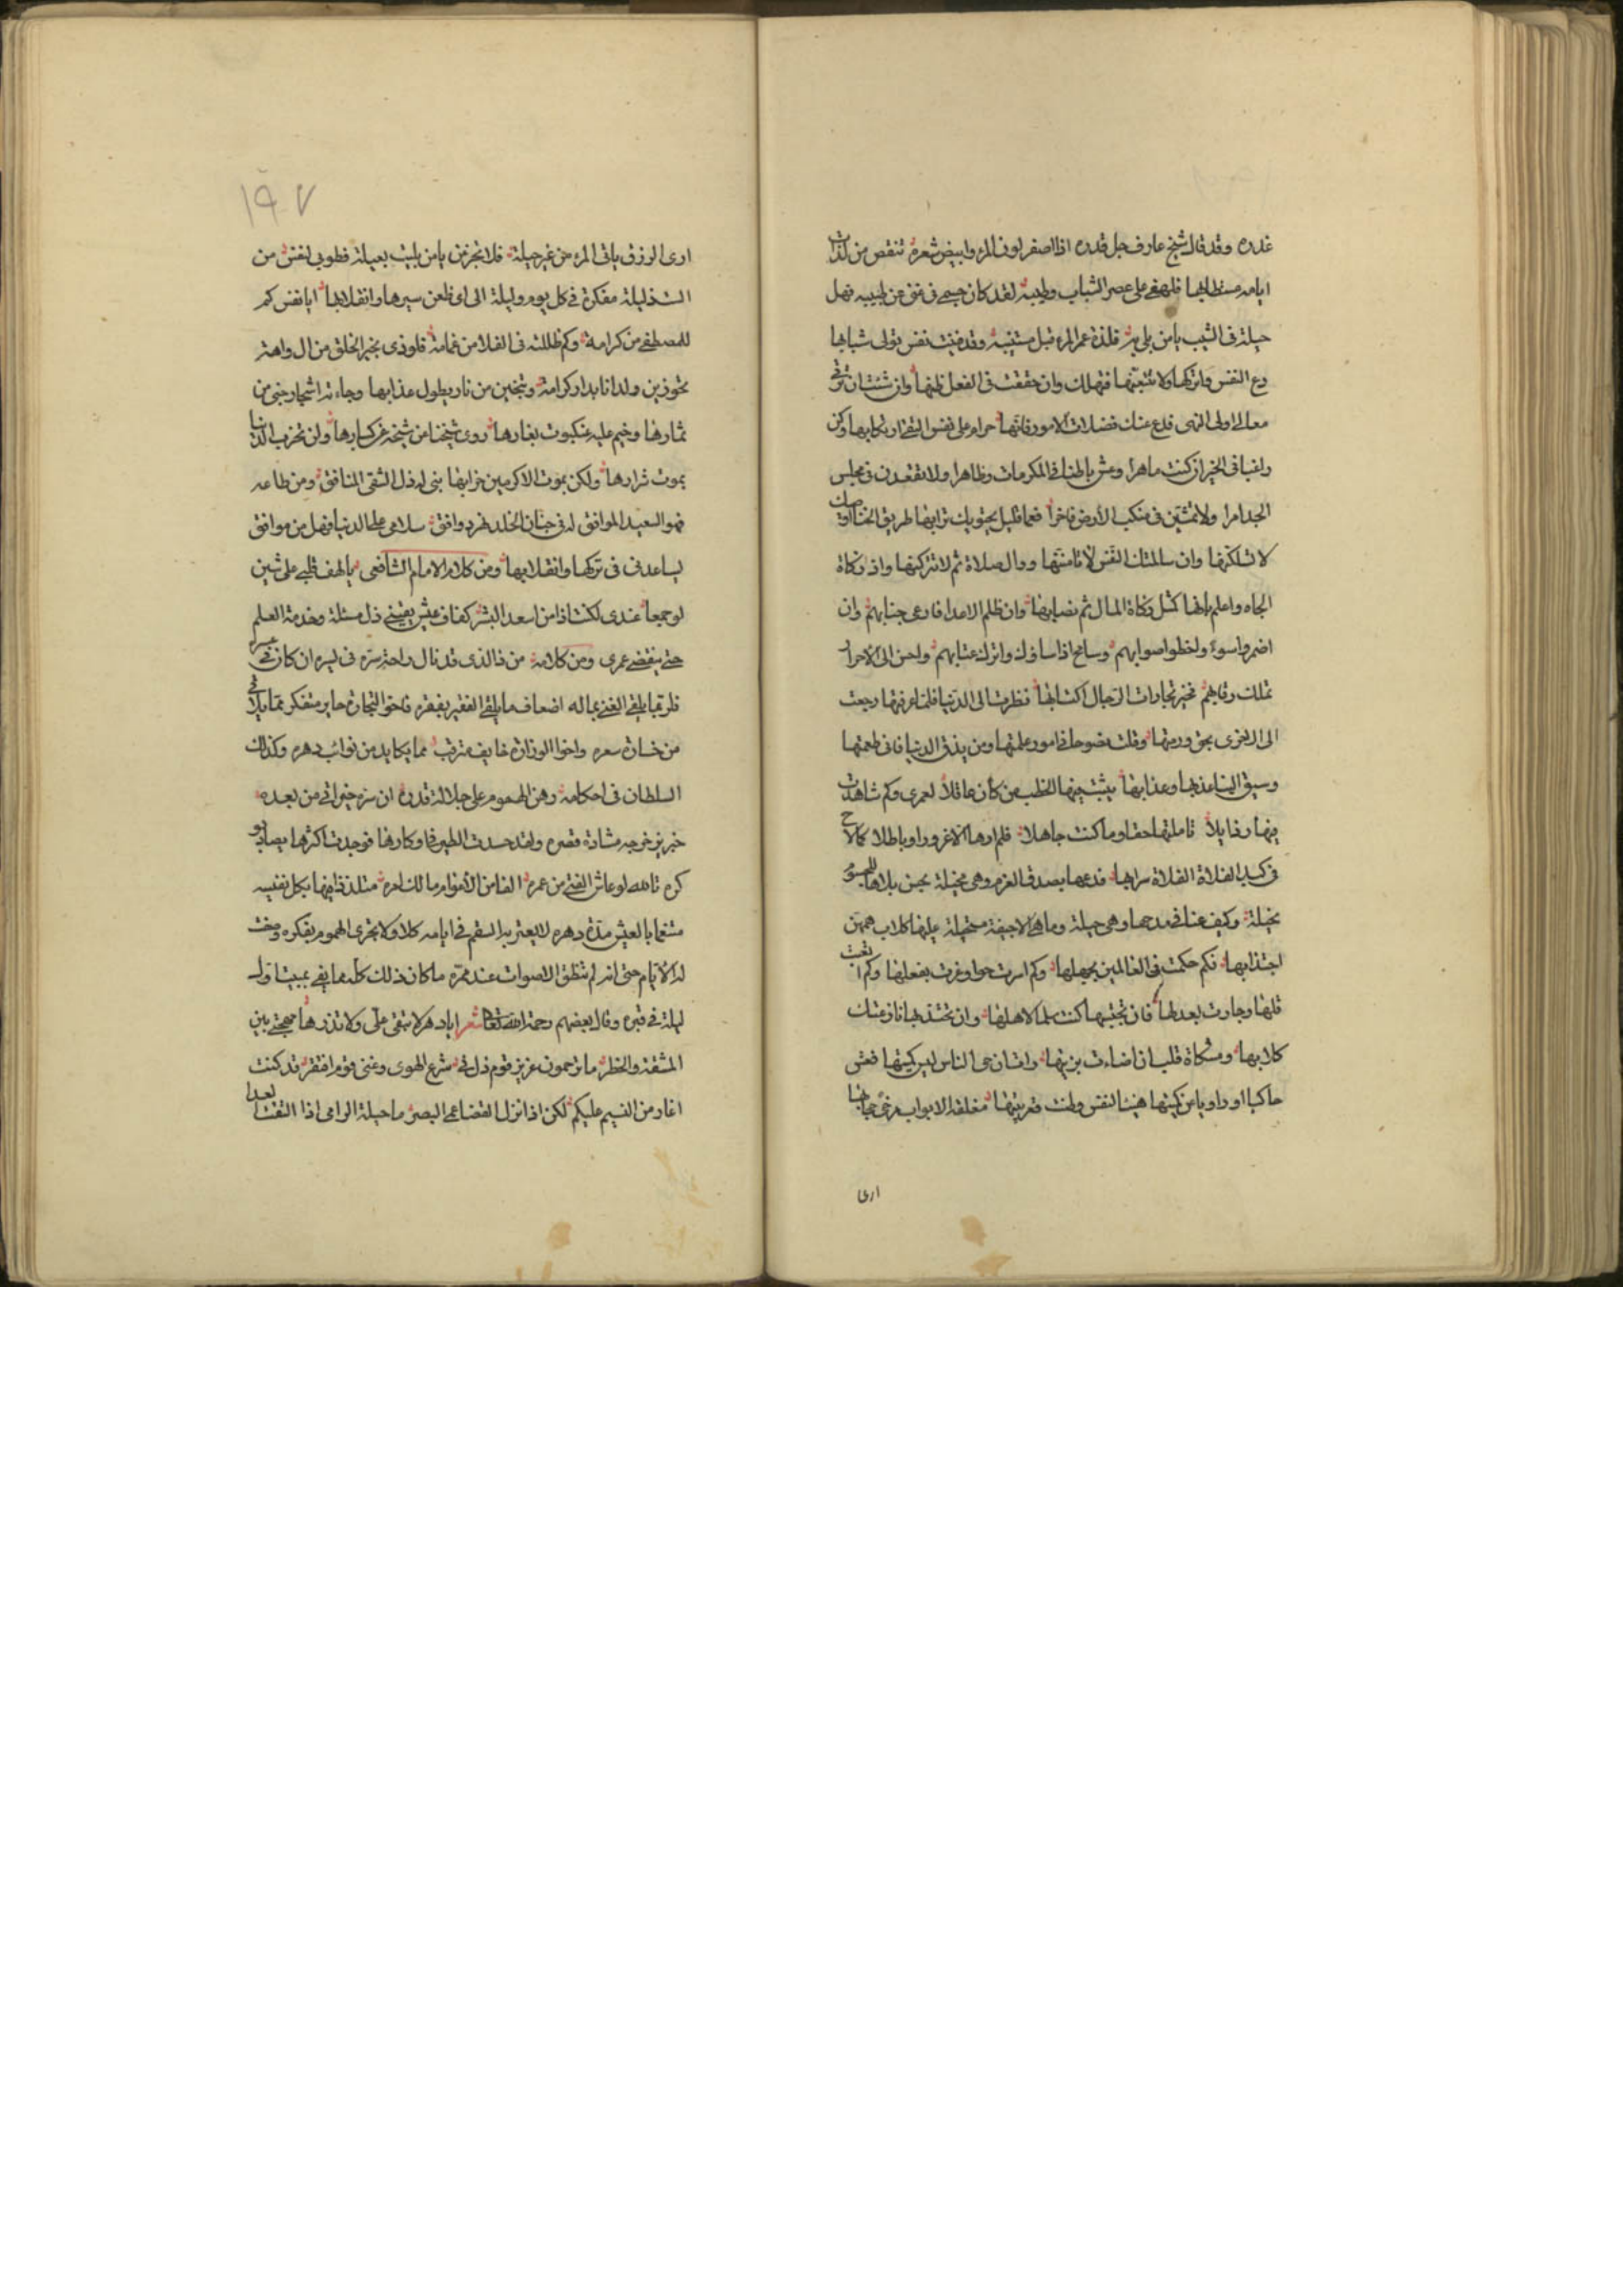 غدره وقد قال شيخ عارف جل قدره اذا اصفر لون المرء وابيض شعره تنقص من لذات
ايامه مستطابها فلهفي على عصر الشباب وطيبه لقد كان جسمي في غنى عن طبيبه فهل
حيلة في الشيب يا من بلي به فلذة عمر المرء قبل مشيبه وقد فنيت نفس تولى شبابها
دع النفس واتركها ولا تتبعنها فتهلك وان حققت في الفعل ظنها وان شئت ان ترقى
معالى اولى النهى فدع عنك فضلات الامور فانها حرام على نفس التقي ارتكابها وكن
راغبا في الخير ان كنت ماهرا وعش باطنا في المكرمات وظاهرا ولا تقعدن في مجلس
الجد امرا ولا تمشين في منكب الأرض فاخرا فعما قليل يحتويك ترابها طريق الخنا
لا تسلكنها وان سالمتك النفس لا تامننها ووال صلاة ثم لا تتركنها واد زكاة
الجاه واعلم بانها كمثل زكاة المال تم نصابها وان ظلم الاعدا فارعى جنابهم وان
اضمروا سوءً ولخطوا صوابهم وسامح اذا ساؤك واترك عتابهم واحسن الى الاحرار
تملك رقابهم فخير تجارات الرجال اكتسابها نظرت الى الدنيا فلما عرفتها رجعت
الى الاخرى بحق ورمتها وقلت نصوحا في امور علمتها ومن يذق الدنيا فاني طعمتها
وسيق الينا عذبها وعذابها يثبت فيها الخطب من كان عاقلاً لعمري وكم شاهدت
فيها رذايلاً تاملتها حقا وما كنت جاهلا فلم ارها الا غرورا وباطلا كما لاح
في كبد الفلاة الفلاة سرابها فدعها بصدق العزم وهي مخيلة بحسن بلاها للهموم
بخيلة وكيف عنا في مدحها وهي حيلة وما هي الا جيفة مستحيلة عليها كلاب همهن
اجتذابها فكم حكمت في العالمين بجهلها وكم اسرت حوا وغرت بفعلها وكم اتعبت
قلبها وجارت بعدلها فان تجتنبها كنت سلما لاهلها وان تجتذبها نازعتك
كلابها ومشكاة قلب ان اضاءت بزيتها واتسان حي الناس ليس كميتها فعش
حاكيا او راويا عن كميتها هنيا لنفس وطنت قعر بيتها مغلقة الابواب مرخى حجابها
ارى
١٩٧
ارى الرزق ياتي المرء من غير حيلة فلا تجزعن يا من بليت بعيلة فطوبى لنفس من
الـ ذليلة مفكرة في كل يوم وليلة الى اى ظعن سيرها وانقلابها ايا نفس كم
للمصطفى من كرامة وكم ظللته في الفلا من غمامة فلوذى بخير الخلق من ال واهتد
تحوزين ولدانا بدار كرامة وتنجين من نار يطول عذابها وجاءته اشجار جنى من
ثمارها وخيم عليه عنكبوت بغارها روى شيخنا من شيخه عن كبارها ولن تخرب الدنيا
بموت شرارها ولكن بموت الاكرمين خرابها بنى له ذل الشقى المنافق ومن طاعه
فهو السعيد الموافق له في جنان الخلد نهر دوافق سلامي على الدنيا فهل من موافق
يساعدني في تركها وانقلابها ومن كلام الامام الشافعي يا لهف قلبي على شين
لو جمعا عندى لكنت اذا من اسعد البشر كفاف عيش يقيني ذل مسئلة وخدمة العلم
حتى ينقضي عمرى ومن كلامه من ذا الذى قد نال راحة سره في يسره ان كان في عسره
فلربما يلقى الغني بماله اضعاف ما يلقى الفقير بفقره فاخو التجارة حاير متفكر مما يلاقي
من خسارة سعره واخوا الوزارة خايف مترقب مما يكابد من نوائب دهره وكذلك
السلطان في احكامه رهن الهموم على جلالة قدره ان سره خيرا تى من بعده
خبر يزعزعه مشادة قصره ولقد حسدت الطير في اوكارها فوجدت اكثرها يصاد
كره تالله لو عاش الفتى من عمره الفا من الأعوام مالك امره متلذذا فيها بكل نفيسه
متنعما بالعيش مدة دهره لا يعتريه السقم في ايامه كلا ولا تجرى الهموم بفكره وصفت
له الأيام حتى انه لم تنطق الاصوات عند ممره ما كان ذلك كله مما يفي بمبيت اول
ليلة في قبره وقال بعضهم رحمة الله تعالى شعر ايا دهر لا تبقى على ولا تذر ها مهجتي بين
المشقة والخطر ما ترحمون عزيز قوم ذل في شرع الهوى وغنى قوم افتقر قد كنت
اغار من النسيم عليكم لكن اذا نزل القضا عمى البصر ما حيلة الرامى اذا التقت العدا